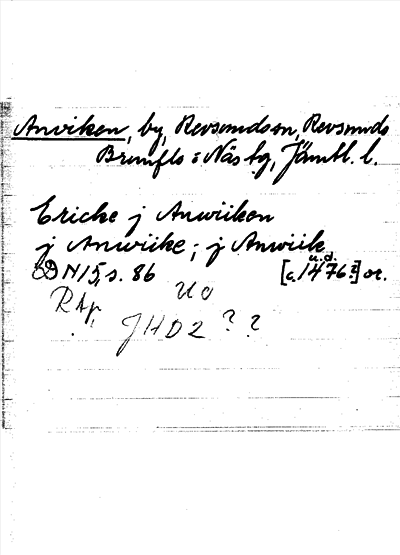 Anviken, by, Revsundsen, Revsunds
Brunflo o Näs tg, Jämtl. l.
Ericke j Anwiiken
j Anwiike; j Anwiik
DN 15, s. 86 [c. 1476?] or.
u.d.
RAp. UO
JHD2 ? ?